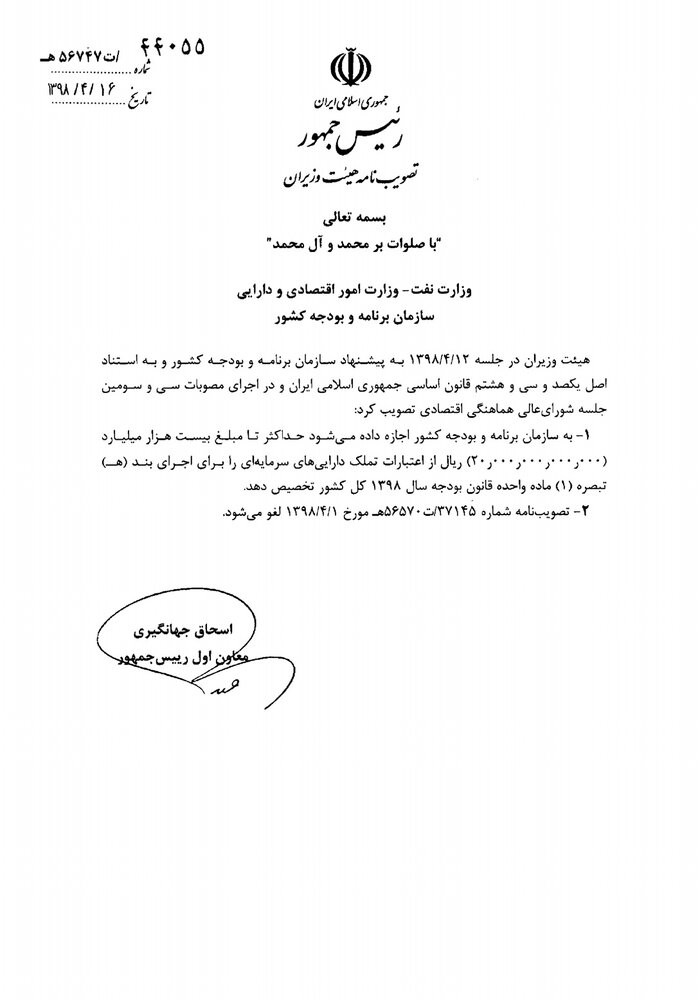 ۴۴۰۵۵/ت۵۶۷۴۷هـ
شماره
۱۳۹۸/۴/۱۶
تاریخ
جمهوری اسلامی ایران
رئیس جمهور
تصویب نامه هیئت وزیران
بسمه تعالی
"با صلوات بر محمد و آل محمد"
وزارت نفت - وزارت امور اقتصادی و دارایی
سازمان برنامه و بودجه کشور
هیئت وزیران در جلسه ۱۳۹۸/۴/۱۲ به پیشنهاد سازمان برنامه و بودجه کشور و به استناد
اصل یکصد و سی و هشتم قانون اساسی جمهوری اسلامی ایران و در اجرای مصوبات سی و سومین
جلسه شورای‌عالی هماهنگی اقتصادی تصویب کرد:
۱- به سازمان برنامه و بودجه کشور اجازه داده می‌شود حداکثر تا مبلغ بیست هزار میلیارد
(۲۰٫۰۰۰٫۰۰۰٫۰۰۰٫۰۰۰) ریال از اعتبارات تملک دارایی‌های سرمایه‌ای را برای اجرای بند (هـ)
تبصره (۱) ماده واحده قانون بودجه سال ۱۳۹۸ کل کشور تخصیص دهد.
۲- تصویب‌نامه شماره ۳۷۱۴۵/ت۵۶۵۷۰هـ مورخ ۱۳۹۸/۴/۱ لغو می‌شود.
اسحاق جهانگیری
معاون اول رییس‌جمهور